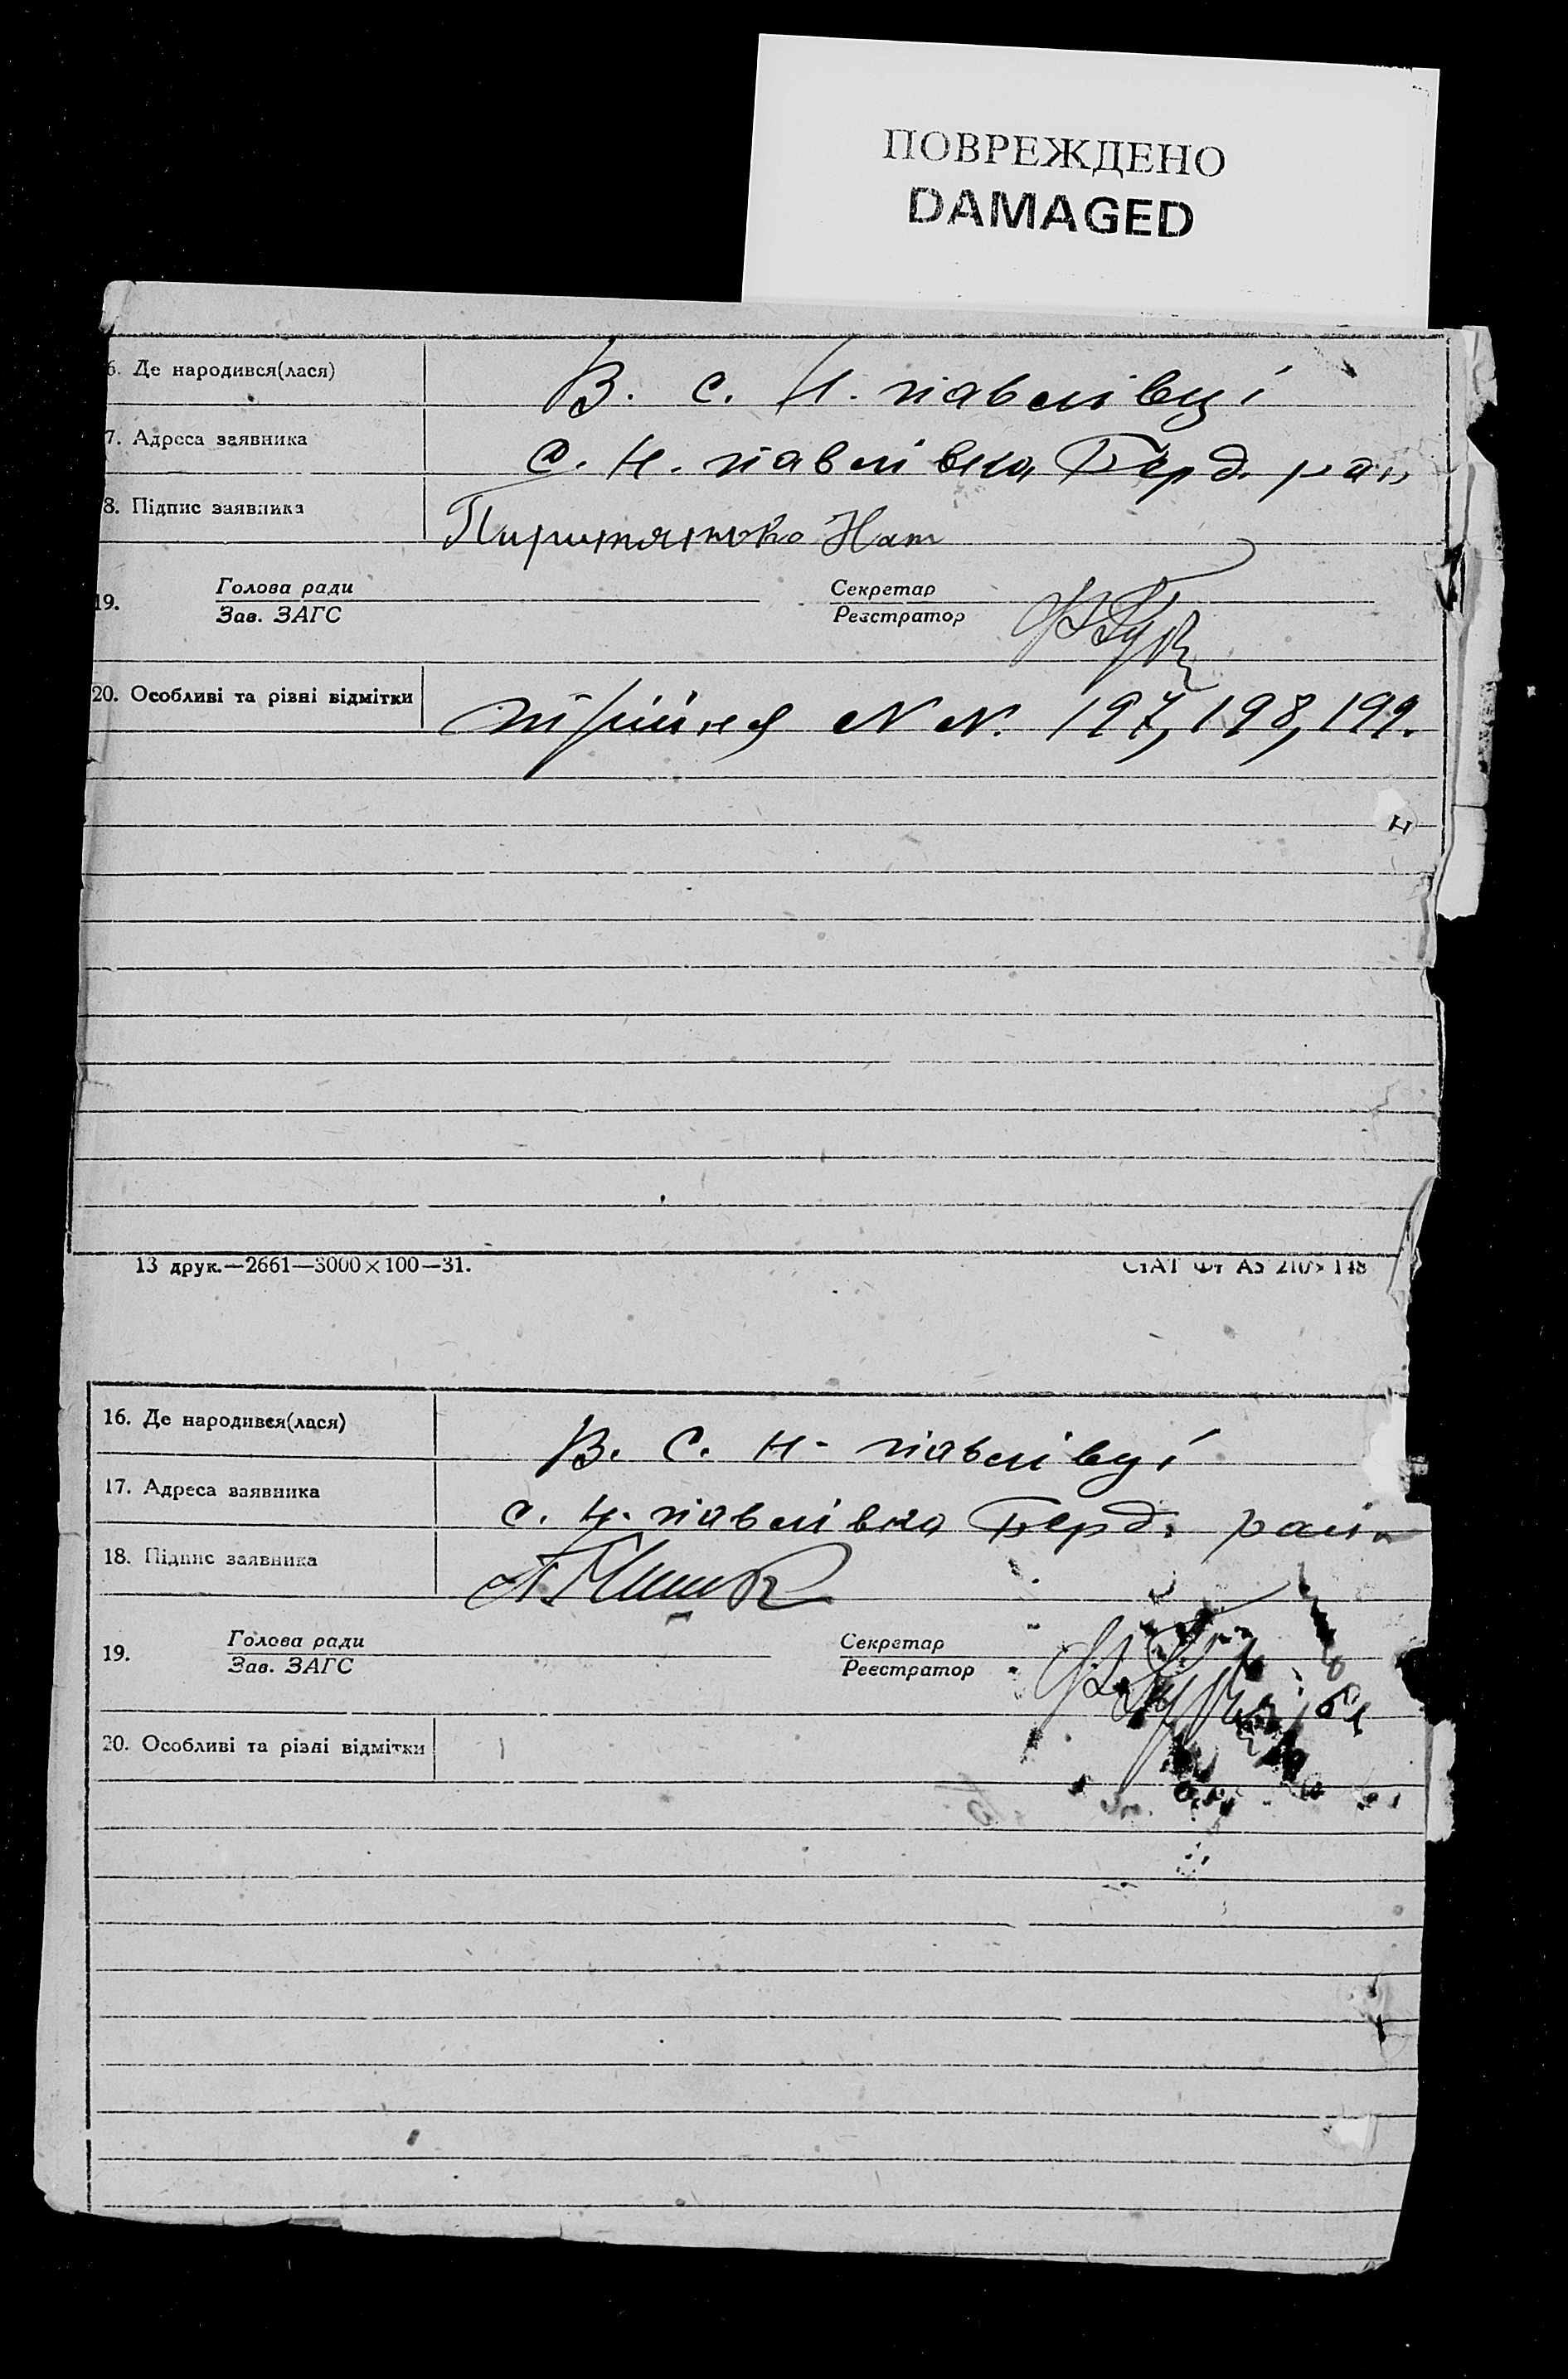 ПОВРЕЖДЕНО
DAMAGED
6. Де народився(лася) В. с. Н. павлівці
7. Адреса заявника с. Н. павлівка Берд. рай
8. Підпис заявника Нат
19. Голова ради Секретар
Зав. ЗАГС Реєстратор
20. Особливі та різні відмітки трійня N N. 197, 198, 199.
13 друк.—2661—3000×100—31.
16. Де народився(лася) В. с. Н. павлівці
17. Адреса заявника с. Н. павлівка Берд. район
18. Підпис заявника
19. Голова ради Секретар
Зав. ЗАГС Реєстратор
20. Особливі та різні відмітки